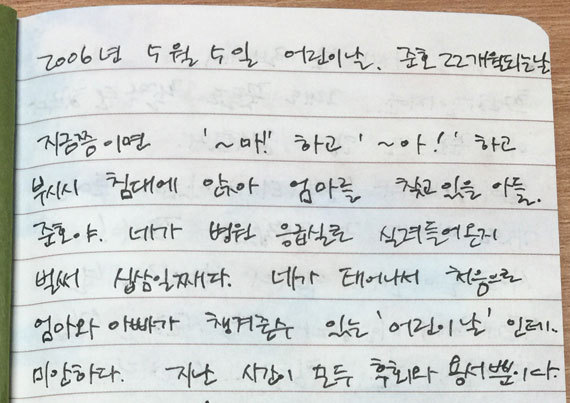 2006년 5월 5일 어린이날. 준호 22개월되는날
지금쯤이면 '~매!' 하고 '~아!' 하고
부시시 침대에 앉아 엄마를 찾고 있을 아들.
준호야. 네가 병원 응급실로 실려들어온지
벌써 십삼일째다. 네가 태어나서 처음으로
엄마와 아빠가 챙겨줄수 있는 '어린이날' 인데.
미안하다. 지난 시간이 모두 후회와 용서뿐이다.